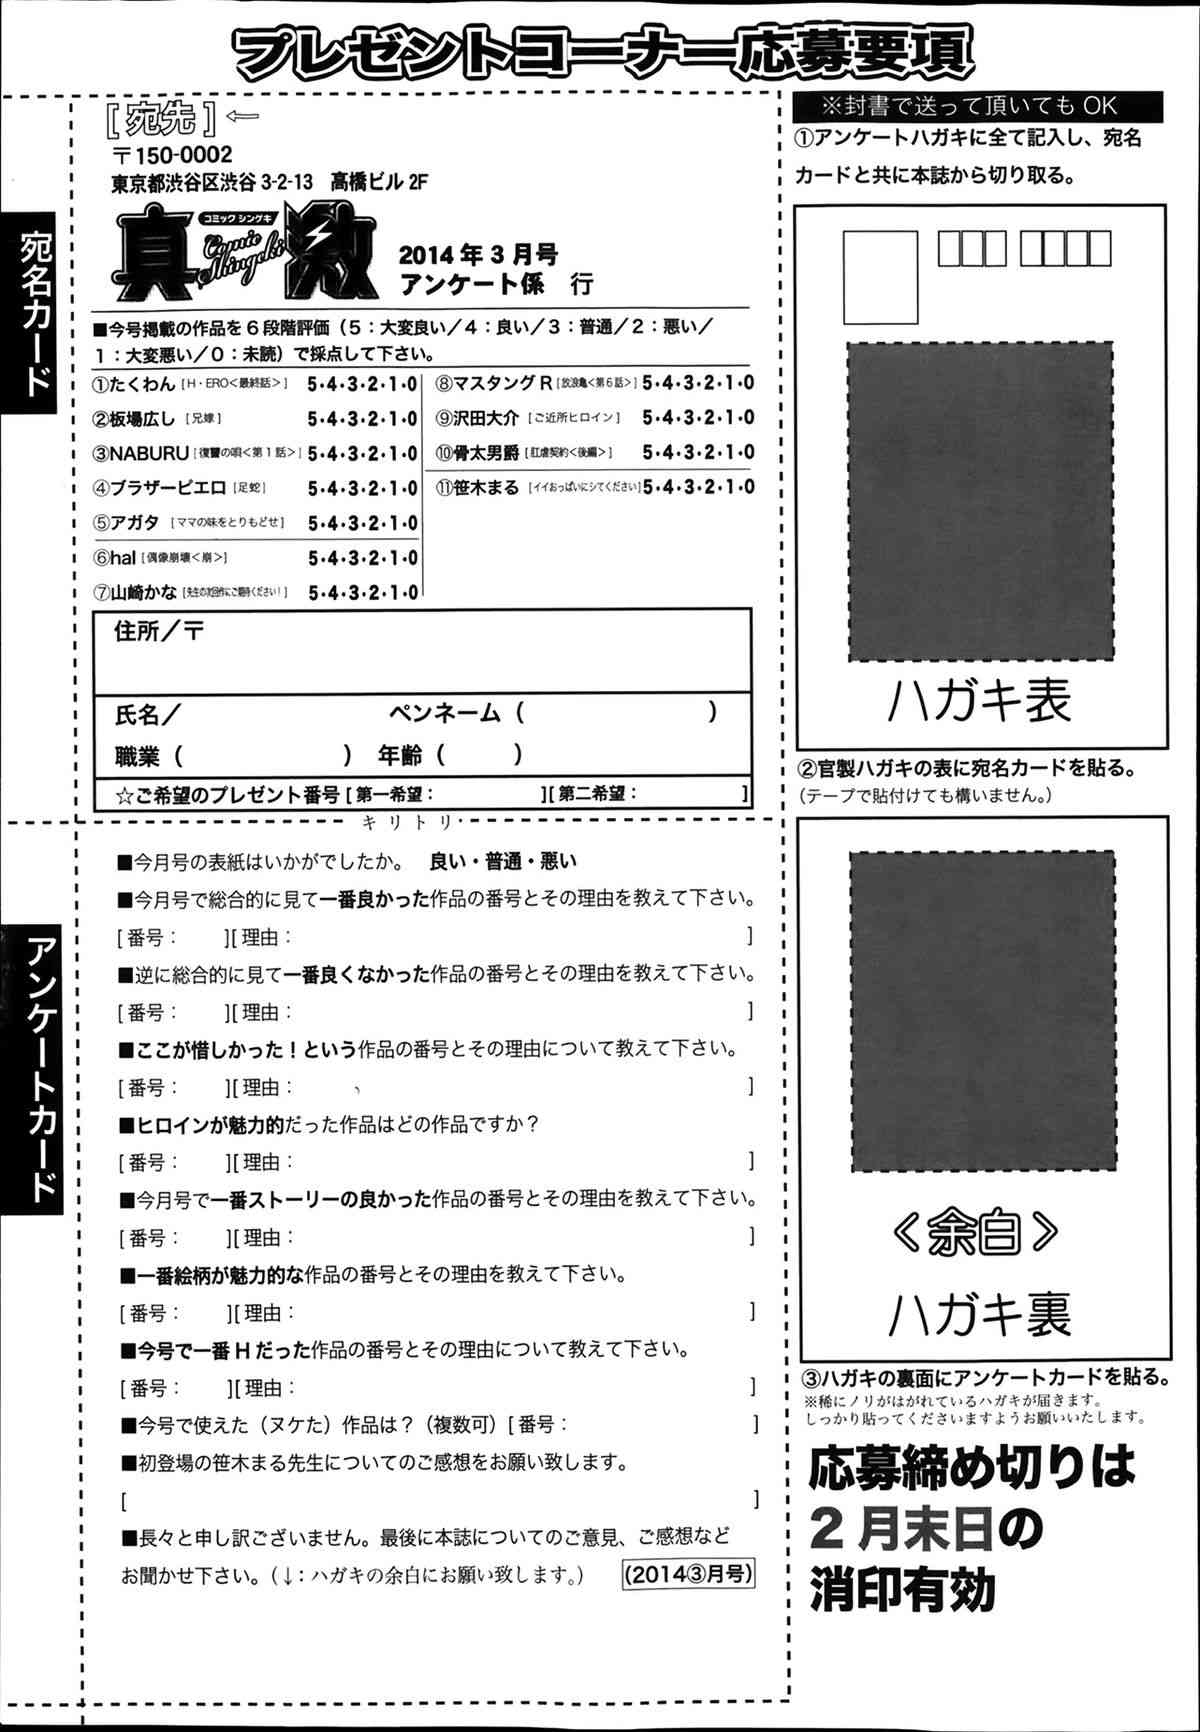 プレゼントコーナー応募要項
宛名カード
[宛先]←
〒150-0002
東京都渋谷区渋谷 3-2-13　高橋ビル 2F
真激
コミック シンゲキ
Comic Shingeki
2014 年 3 月号
アンケート係　行
■今号掲載の作品を 6 段階評価（5：大変良い／4：良い／3：普通／2：悪い／
1：大変悪い／0：未読）で採点して下さい。
①たくわん [H・ERO<最終話>] 5・4・3・2・1・0
②板場広し [兄嫁] 5・4・3・2・1・0
③NABURU [復讐の唄<第1話>] 5・4・3・2・1・0
④ブラザーピエロ [足蛇] 5・4・3・2・1・0
⑤アガタ [ママの味をとりもどせ] 5・4・3・2・1・0
⑥hal [偶像崩壊<崩>] 5・4・3・2・1・0
⑦山崎かな [先生の次回作にご期待ください！] 5・4・3・2・1・0
⑧マスタング R [放浪亀<第6話>] 5・4・3・2・1・0
⑨沢田大介 [ご近所ヒロイン] 5・4・3・2・1・0
⑩骨太男爵 [肛虐契約<後編>] 5・4・3・2・1・0
⑪笹木まる [イイおっぱいにシてください] 5・4・3・2・1・0
住所／〒
氏名／　ペンネーム（　）
職業（　）　年齢（　）
☆ご希望のプレゼント番号 [ 第一希望：　][ 第二希望：　]
キリトリ
アンケートカード
■今月号の表紙はいかがでしたか。　良い・普通・悪い
■今月号で総合的に見て一番良かった作品の番号とその理由を教えて下さい。
[ 番号：　][ 理由：　]
■逆に総合的に見て一番良くなかった作品の番号とその理由を教えて下さい。
[ 番号：　][ 理由：　]
■ここが惜しかった！という作品の番号とその理由について教えて下さい。
[ 番号：　][ 理由：　]
■ヒロインが魅力的だった作品はどの作品ですか？
[ 番号：　][ 理由：　]
■今月号で一番ストーリーの良かった作品の番号とその理由を教えて下さい。
[ 番号：　][ 理由：　]
■一番絵柄が魅力的な作品の番号とその理由を教えて下さい。
[ 番号：　][ 理由：　]
■今号で一番 H だった作品の番号とその理由について教えて下さい。
[ 番号：　][ 理由：　]
■今号で使えた（ヌケた）作品は？（複数可）[ 番号：　]
■初登場の笹木まる先生についてのご感想をお願い致します。
[　]
■長々と申し訳ございません。最後に本誌についてのご意見、ご感想など
お聞かせ下さい。（↓：ハガキの余白にお願い致します。）　(2014③月号)
※封書で送って頂いても OK
①アンケートハガキに全て記入し、宛名
カードと共に本誌から切り取る。
ハガキ表
②官製ハガキの表に宛名カードを貼る。
（テープで貼付けても構いません。）
<余白>
ハガキ裏
③ハガキの裏面にアンケートカードを貼る。
※稀にノリがはがれているハガキが届きます。
しっかり貼ってくださいますようお願いいたします。
応募締め切りは
2 月末日の
消印有効